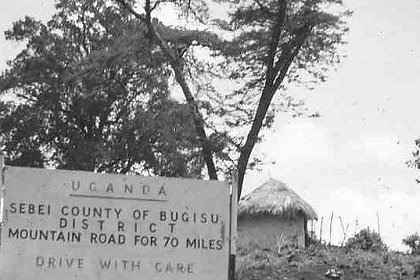 UGANDA
SEBEI COUNTY OF BUGISU
DISTRICT
MOUNTAIN ROAD FOR 70 MILES
DRIVE WITH CARE